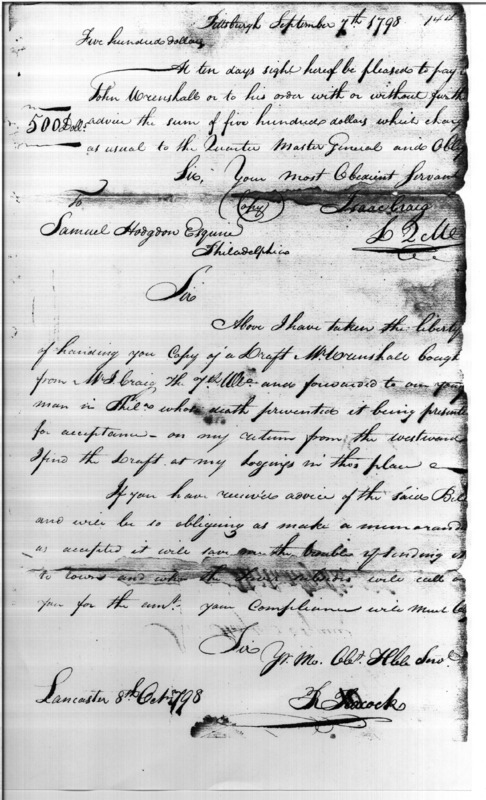 Pittsburgh September 7th 1798 144
Five hundred dollars
At ten days sight hereof be pleased to pay
John Wrenshall or to his order with or without furth
500 Doll. advice the sum of five hundred dollars which charg
as usual to the Quarter Master General and Oblig
Sir, Your Most Obedient Servan
To (Copy) Isaac Craig
Samuel Hodgdon Esquire D Q M
Philadelphia
Sir
Above I have taken the liberty
of handing you Copy of a Draft Mr. Wrenshall bough
from Mr. I. Craig, the 7th and forwarded to our young
man in Phila. whose death prevented it being presente
for acceptance - on my return from the westward
I find the Draft at my lodgings in this place
If you have received advice of the said Bill
and will be so obliging as make a memorand
as accepted it will save me the trouble of sending it
to town and will call o
you for the amt. your Compliance will much
Sir
Yr. M. Obt. Hble Servt.
Lancaster 8th Octr. 1798 Peacock